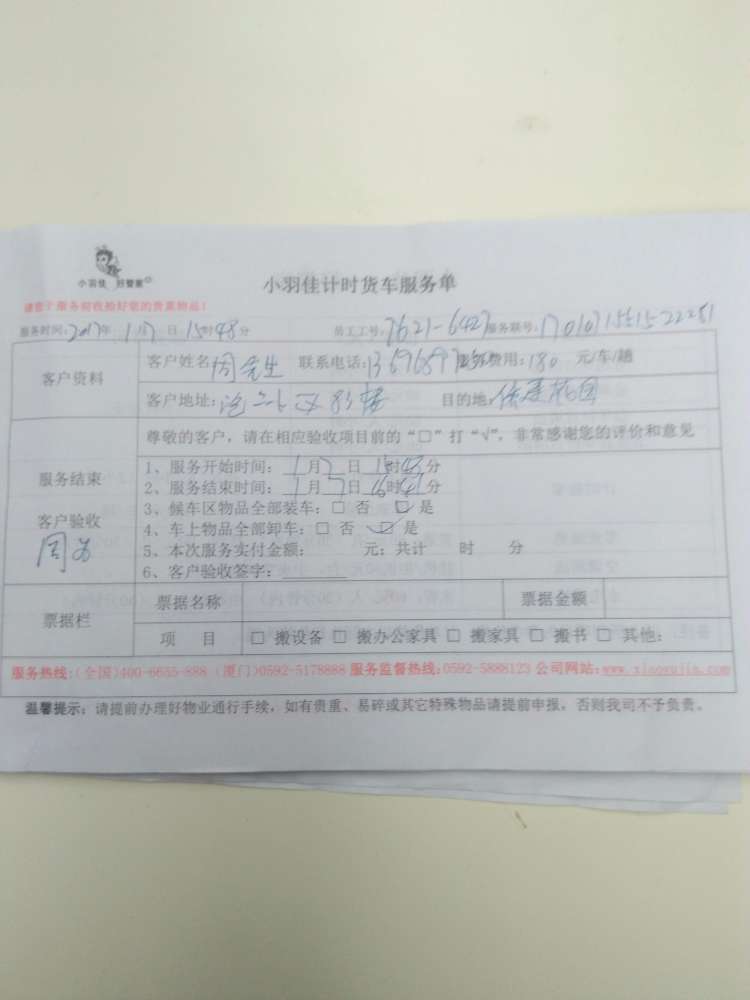 小羽佳 好管家
小羽佳计时货车服务单
请您于服务前收拾好您的贵重物品!
服务时间:2017年1月7日15时48分 员工工号:7621-6427 服务联号:
客户资料
客户姓名:周先生 联系电话: 服务费用:180 元/车/趟
客户地址: 目的地:
尊敬的客户,请在相应验收项目前的“□”打“√”,非常感谢您的评价和意见
服务结束
客户验收
1、服务开始时间:1月7日 时 分
2、服务结束时间:1月7日 时 分
3、候车区物品全部装车:□ 否 □ 是
4、车上物品全部卸车:□ 否 □ 是
5、本次服务实付金额: 元:共计 时 分
6、客户验收签字:
票据栏
票据名称 票据金额
项 目 □ 搬设备 □ 搬办公家具 □ 搬家具 □ 搬书 □ 其他:
服务热线:(全国)400-6655-888 (厦门)0592-5178888 服务监督热线:0592-5888123 公司网站:www.xiaoyujia.com
温馨提示:请提前办理好物业通行手续,如有贵重、易碎或其它特殊物品请提前申报,否则我司不予负责。